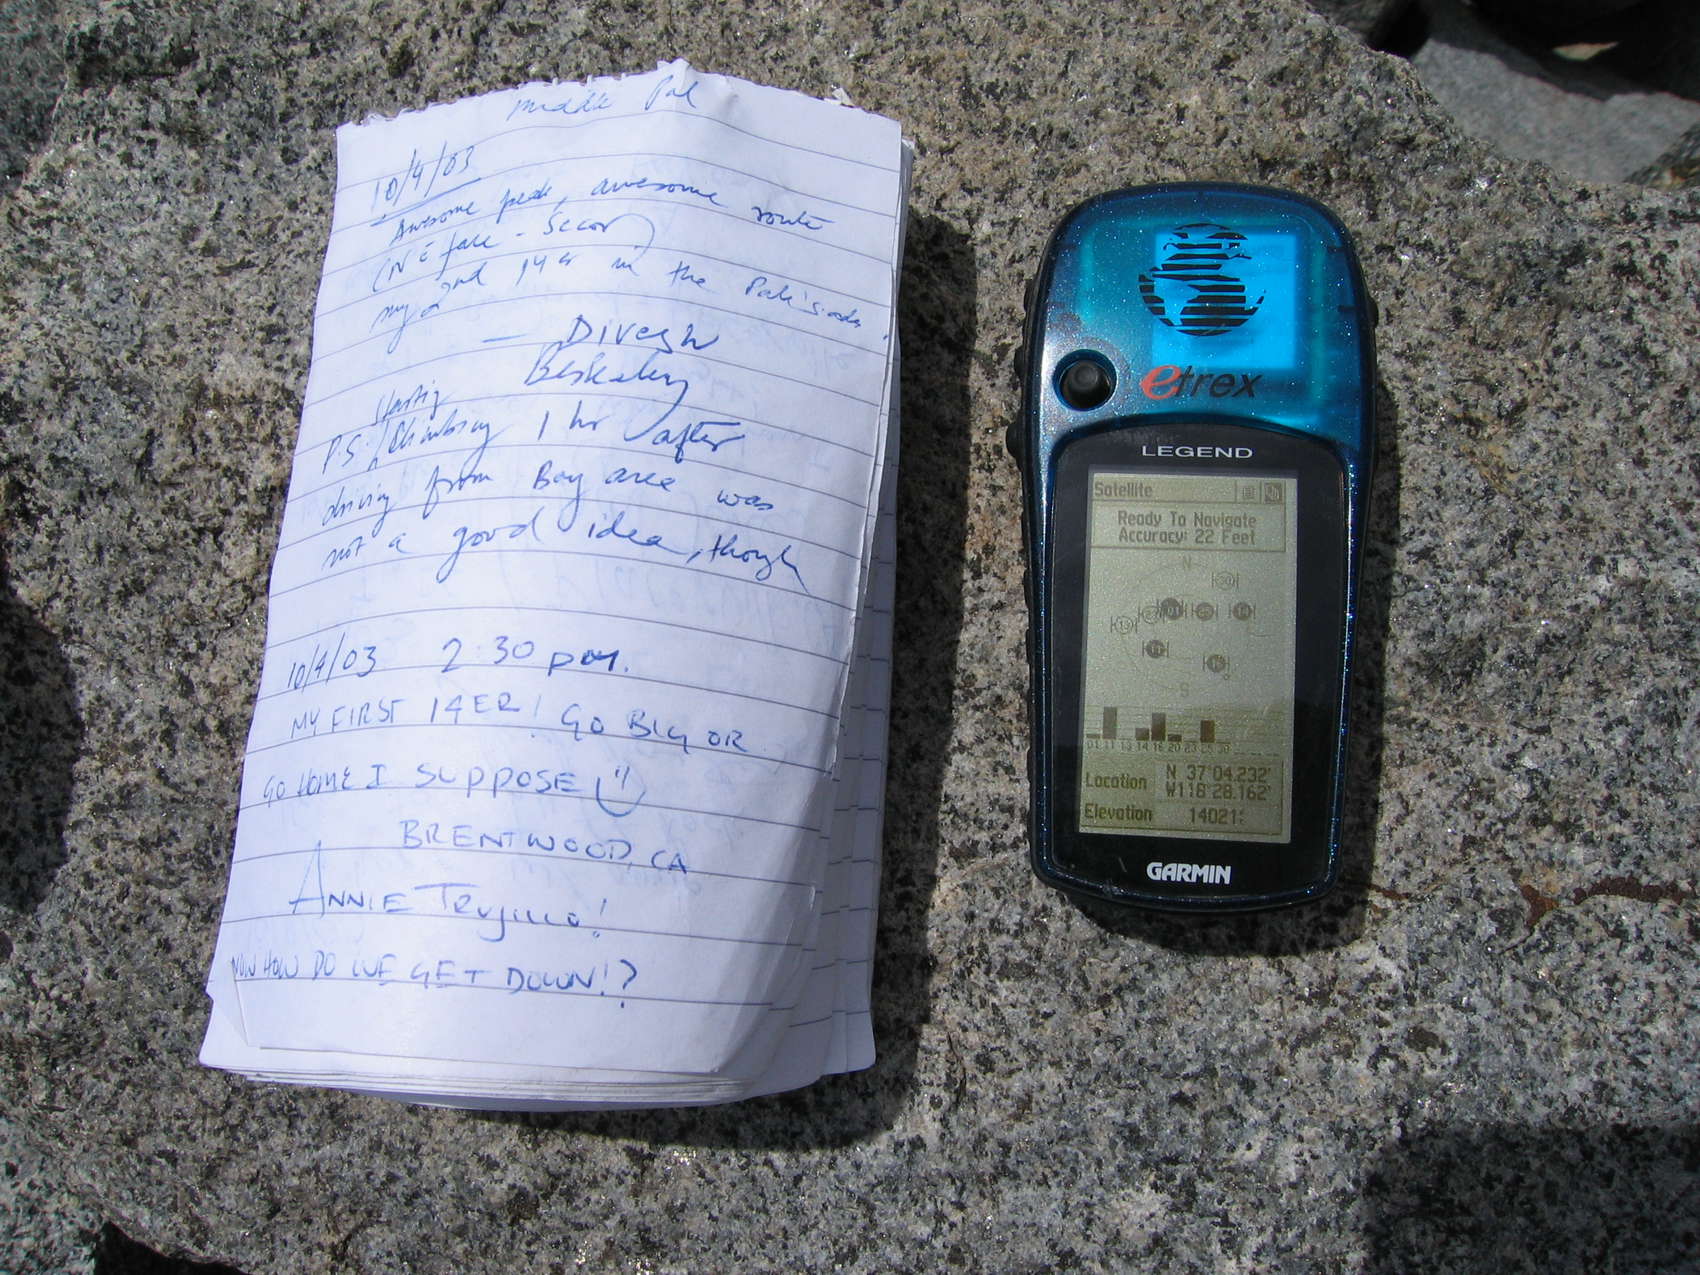 Middle Pal
10/4/03
Awesome peak, awesome route
(NE face - Secor)
my 2nd 14er in the Palisades.
— Divesh
Berkeley
starting
P.S. climbing 1 hr after
driving from Bay area was
not a good idea, though
10/4/03 2:30 pm.
MY FIRST 14ER! GO BIG OR
GO HOME I SUPPOSE
BRENTWOOD, CA
ANNIE TRUJILLO!
NOW HOW DO WE GET DOWN!?
etrex
LEGEND
Satellite
Ready To Navigate
Accuracy: 22 Feet
N
S
01 11 13 14 16 20 23 25 30
Location N 37°04.232'
W118°28.162'
Elevation 14021'
GARMIN